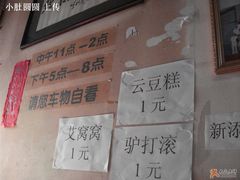 小肚圆圆 上传
中午11点—2点
下午5点—8点
请您车物自看
云豆糕
1元
艾窝窝
1元
驴打滚
1元
新添